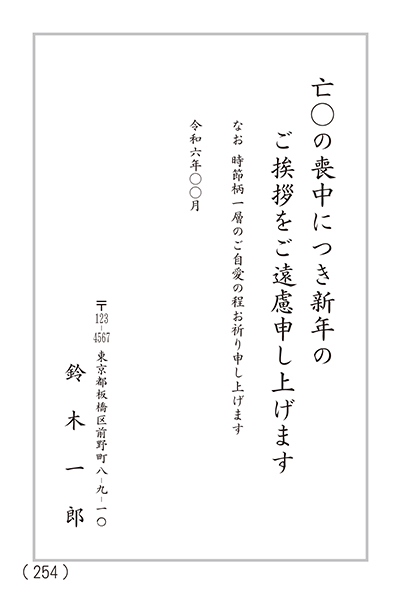 亡〇の喪中につき新年の
ご挨拶をご遠慮申し上げます
なお 時節柄一層のご自愛の程お祈り申し上げます
令和六年〇〇月
〒123-4567 東京都板橋区前野町八-九-一〇
鈴木一郎
(254)